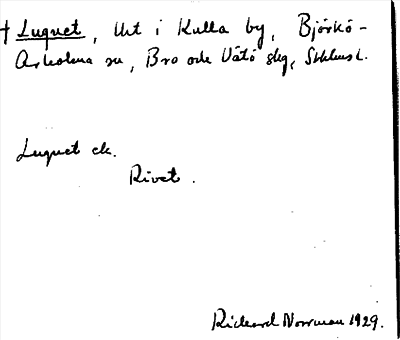 † Luquet, Urt i Kulla by, Björkö-
Arholma sn, Bro och Vätö skg, Sthlms l.
Luquet ek.
Rivet.
Rickard Norrman 1929.